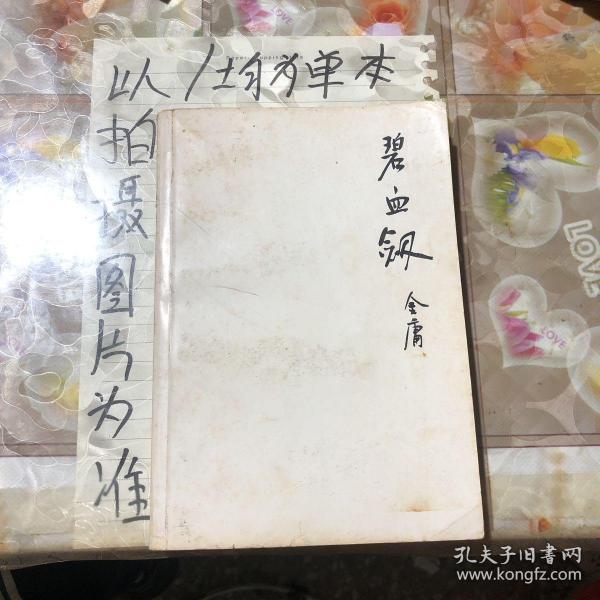 均为单本
以拍摄图片为准
碧血剑
金庸
LOVE
LOVE
LOVE
孔夫子旧书网
www.kongfz.com